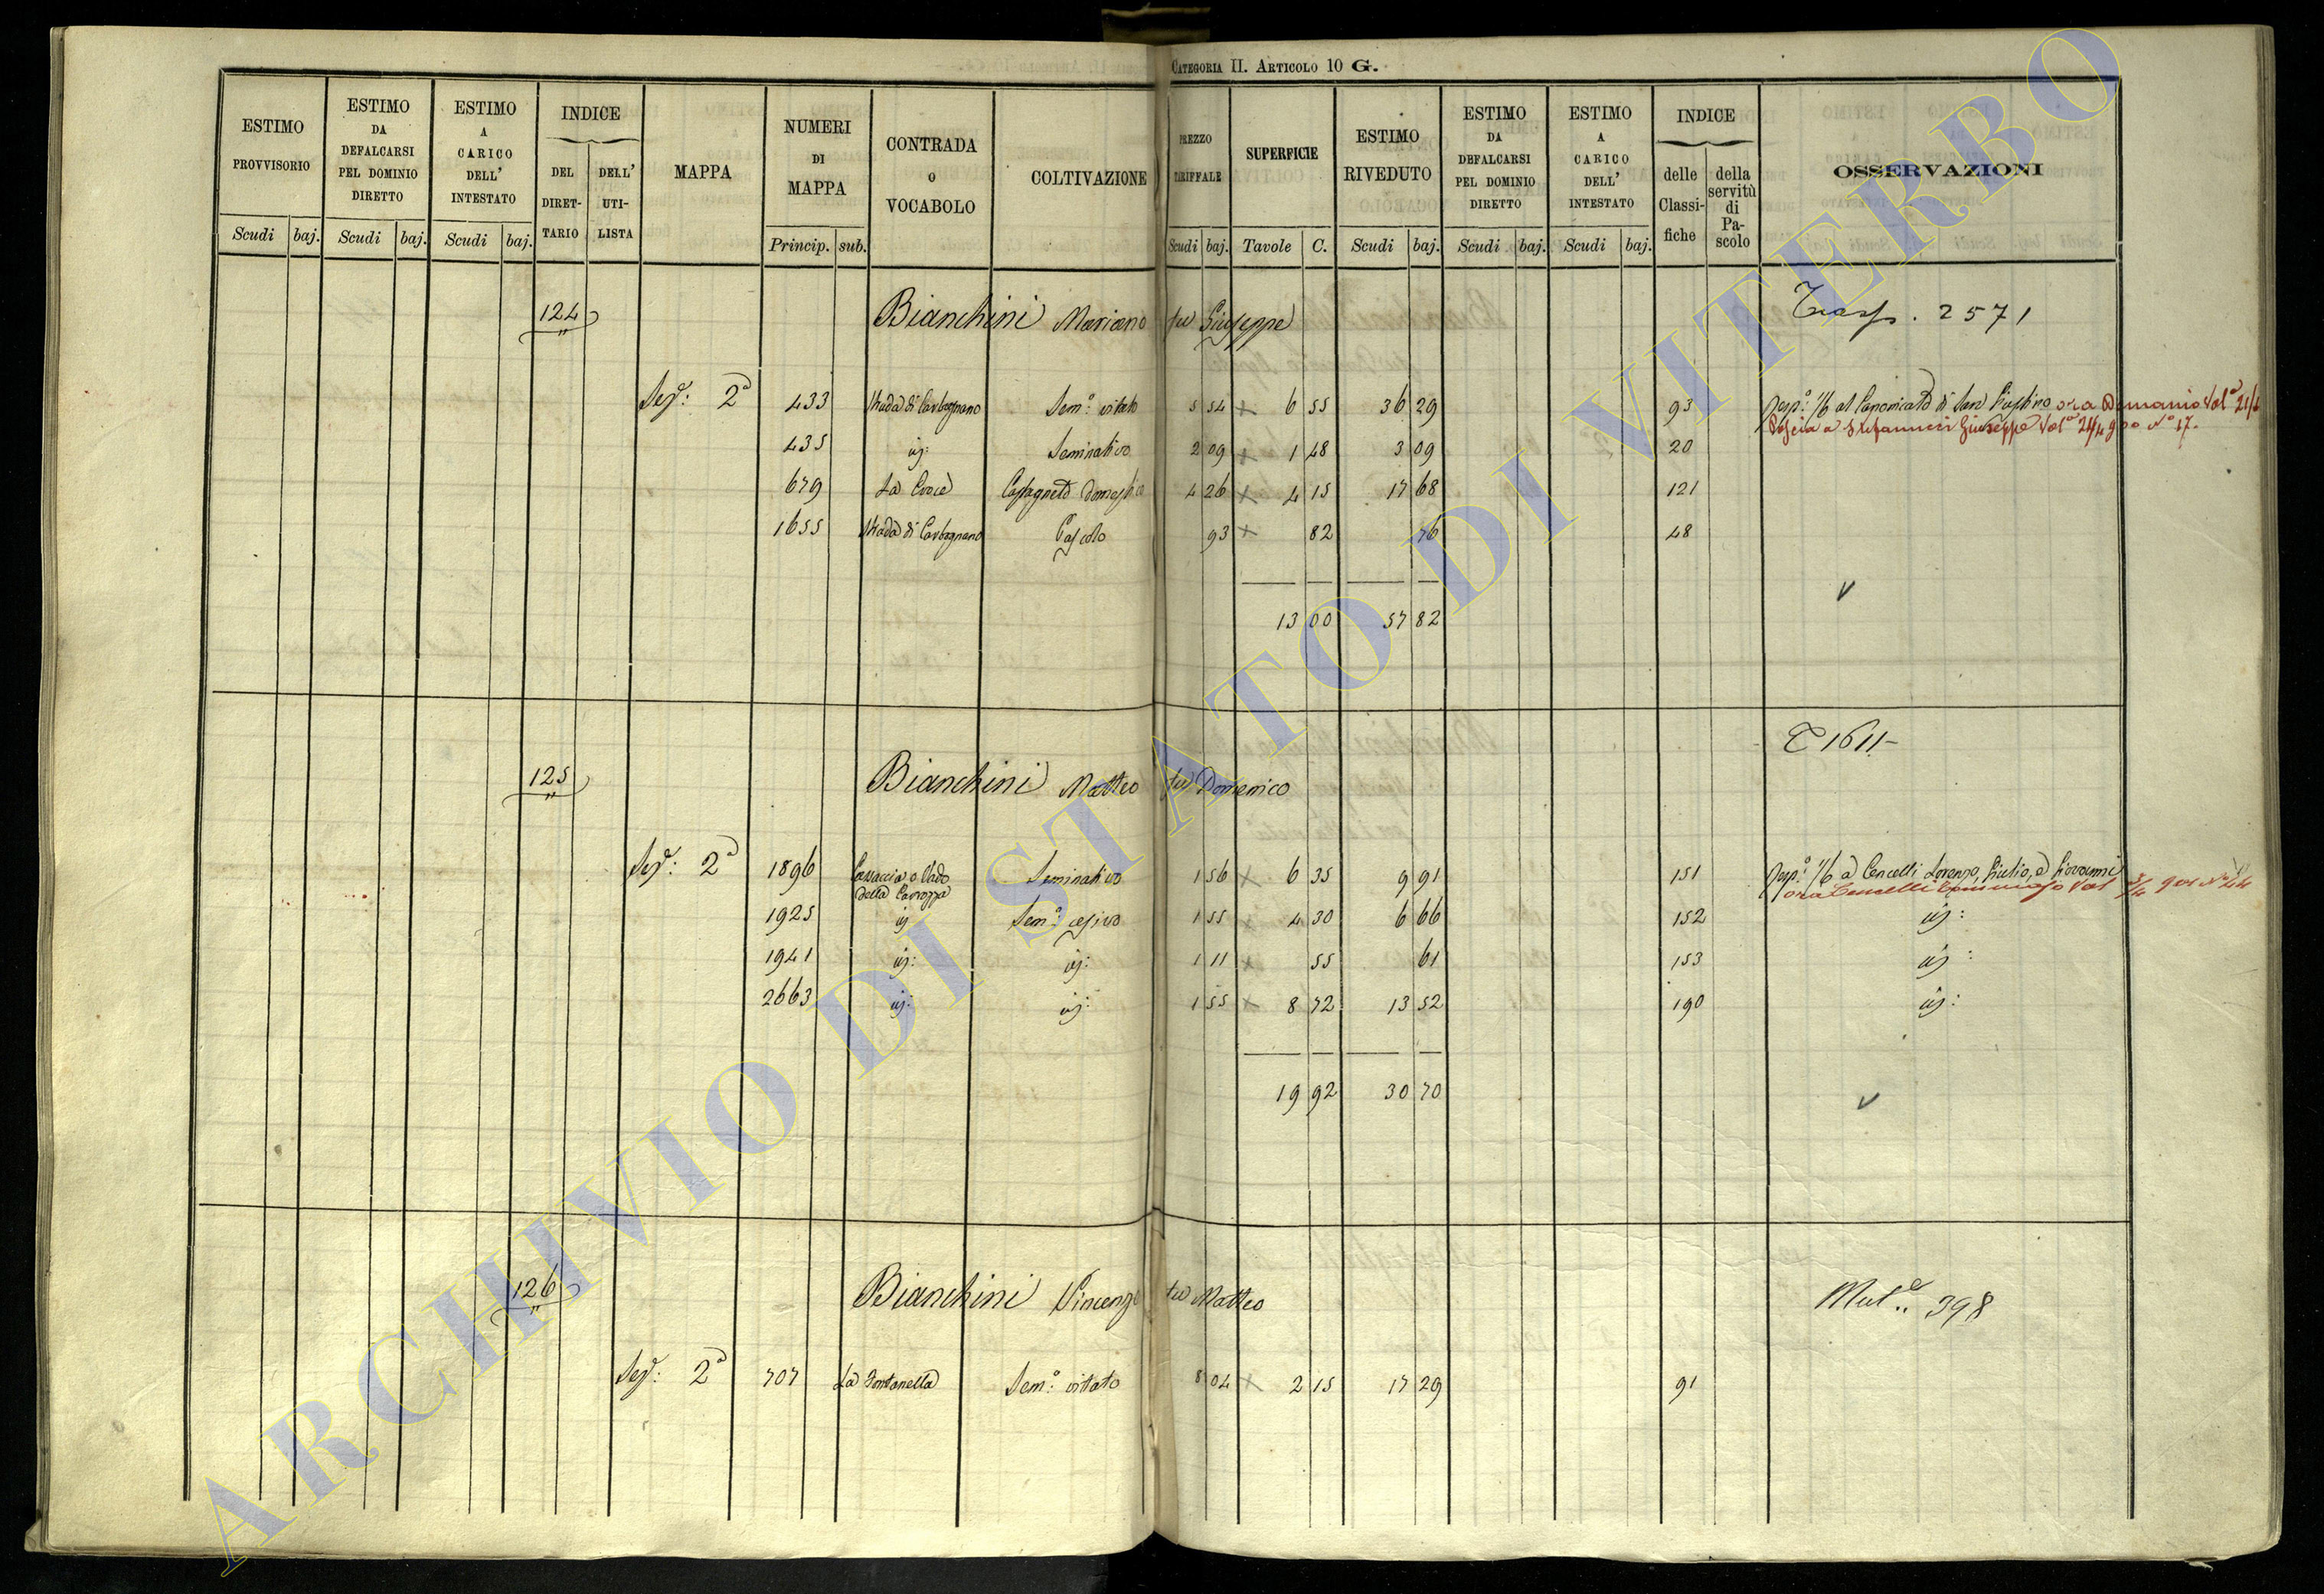 CATEGORIA II. ARTICOLO 10 G.
ESTIMO PROVVISORIO | ESTIMO DA DEFALCARSI PEL DOMINIO DIRETTO | ESTIMO A CARICO DELL' INTESTATO | INDICE DEL DIRET-TARIO | DELL' UTI-LISTA | MAPPA | NUMERI DI MAPPA | CONTRADA O VOCABOLO | COLTIVAZIONE | PREZZO TARIFFALE | SUPERFICIE | ESTIMO RIVEDUTO | ESTIMO DA DEFALCARSI PEL DOMINIO DIRETTO | ESTIMO A CARICO DELL' INTESTATO | INDICE delle Classi-fiche | della servitù di Pa-scolo | OSSERVAZIONI
Scudi baj. Scudi baj. Scudi baj. Princip. sub. Scudi baj. Tavole C. Scudi baj. Scudi baj. Scudi baj.
124 Bianchini Mariano fu Giuseppe 2571
Sez: 2a 433 Strada di Carbognano Sem: vitato 5 54 x 6 55 36 29 93 Risp: 1/6 al Canonicato di San Giustino ora Demanio Vol
435 id: Seminativo 2 09 x 1 48 3 09 20
679 La Croce Castagneto domestico 4 26 x 4 15 17 68 121
1655 Strada di Carbognano Pascolo 93 x 82 76 48
13 00 57 82
T 1611
125 Bianchini Matteo fu Domenico
Sez: 2a 1896 o Vado della Carrozza Seminativo 1 56 x 6 35 9 91 151 Risp: 1/6 a Cencelli Lorenzo, Giulio, e Giovanni
ora Cencelli
1925 id Sem: cesivo 1 55 x 4 30 6 66 152 id:
1941 id: id: 1 11 x 55 61 153 id:
2663 id: id: 1 55 x 8 72 13 52 190 id:
19 92 30 70
126 Bianchini Vincenzo fu Matteo 398
Sez: 2a 707 La Fontanella Sem: vitato 8 04 x 2 15 17 29 91
ARCHIVIO DI STATO DI VITERBO